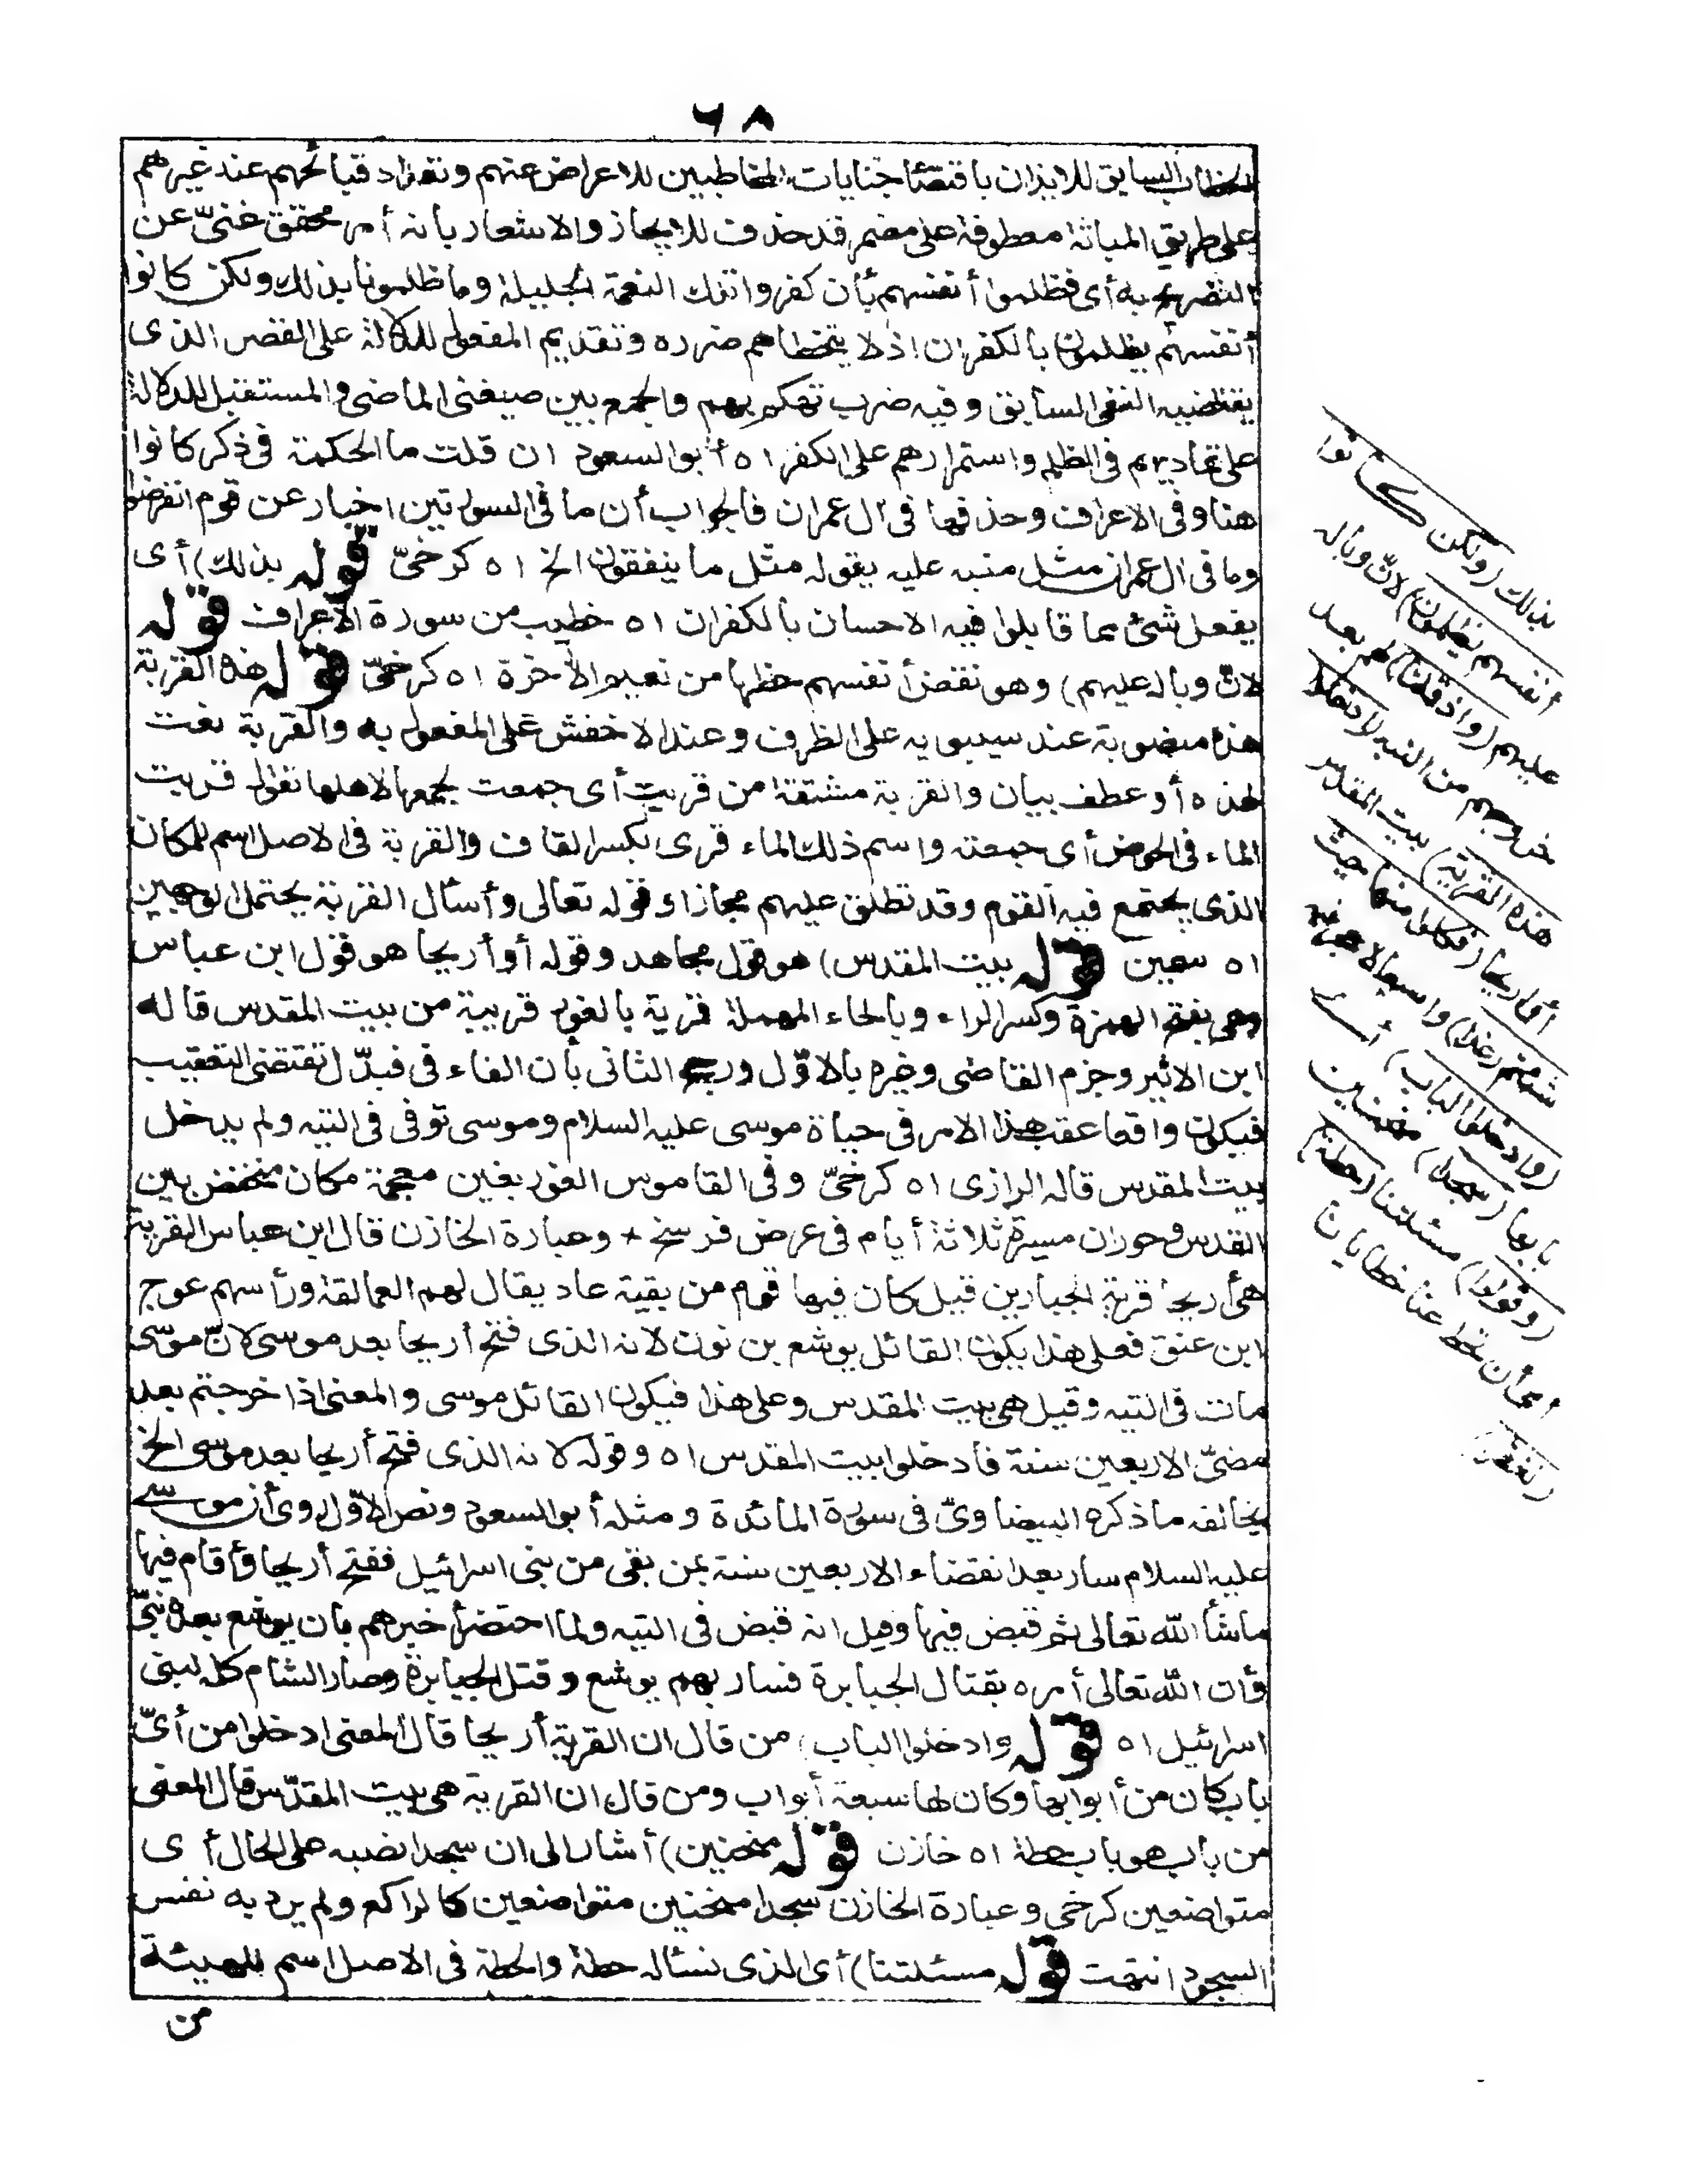 ٦٨
الخطاب السابق للايذان باقتضا جنايات المخاطبين للاعراض عنهم وتعداد قبائحهم عند غيرهم
على طريق المباثة معطوفة على مضمر قد حذف للايجاز والاشعار بانه أمر محقق غنيّ عن
التصريح به أى فظلموا أنفسهم بأن كفروا تلك النعمة الجليلة وما ظلمونا بذلك ولكن كانوا
أنفسهم يظلمون بالكفران اذ لا يتخطاهم ضرره وتقديم المفعول للدلالة على القصر الذى
يقتضيه النفى السابق وفيه ضرب تهكم بهم والجمع بين صيغتى الماضى والمستقبل للدلالة
على تماديهم فى الظلم واستمرارهم على الكفر اه أبو السعود ان قلت ما الحكمة فى ذكر كانوا
هنا وفى الاعراف وحذفها فى آل عمران فالجواب أن ما فى السورتين اخبار عن قوم انقرضوا
وما فى ال عمران مثل منبه عليه بقوله مثل ما ينفقون الخ اه كرخىّ قوله بذلك) أى
بفعل شئ مما قابلوا فيه الاحسان بالكفران اه خطيب من سورة الأعراف قوله
لانّ وباله عليهم) وهو نقض أنفسهم حظها من نعيم الآخرة اه كرخىّ قوله هذه القرية
هذه منصوبة عند سيبويه على الظرف وعند الاخفش على المفعول به والقرية نعت
لهذه أو عطف بيان والقرية مشتقة من قريت أى جمعت لجمعها لاهلها تقول قريت
الماء فى الحوض أى جمعته واسم ذلك الماء قرى بكسر القاف والقرية فى الاصل اسم للمكان
الذى يجتمع فيه القوم وقد تطلق عليهم مجازا وقوله تعالى وأسأل القرية يحتمل الوجهين
اه سمين قوله بيت المقدس) هو قول مجاهد وقوله أو أريحا هو قول ابن عباس
وهى بفتح الهمزة وكسر الراء وبالحاء المهملة قرية بالغور قريبة من بيت المقدس قاله
ابن الاثير وجزم القاضى وغيره بالاوّل ورجح الثانى بأن الفاء فى فبدّل تقتضى التعقيب
فيكون واقعا عقب هذا الامر فى حياة موسى عليه السلام وموسى توفى فى التيه ولم يدخل
بيت المقدس قاله الرازى اه كرخىّ وفى القاموس الغور بغين معجمة مكان منخفض بين
القدس وحوران مسيرة ثلاثة أيام فى عرض فرسخ + وعبارة الخازن قال ابن عباس القرية
هى أريحا قرية الجبارين قيل كان فيها قوم من بقية عاد يقال لهم العمالقة ورأسهم عوج
ابن عنق فعلى هذا يكون القائل يوشع بن نون لانه الذى فتح أريحا بعد موسى لانّ موسى
مات فى التيه وقيل هى بيت المقدس وعلى هذا فيكون القائل موسى والمعنى اذا خرجتم بعد
مضىّ الاربعين سنة فادخلوا بيت المقدس اه وقوله لانه الذى فتح أريحا بعد موسى الخ
يخالفه ما ذكره البيضاوىّ فى سورة المائدة ومثله أبو السعود ونص الاوّل روى أن موسى
عليه السلام سار بعد انقضاء الاربعين سنة بمن بقى من بنى اسرائيل ففتح أريحا وأقام فيها
ماشأ الله تعالى ثم قبض فيها وقيل انه قبض فى التيه ولما احتضر أخبرهم بان يوشع بعده نبىّ
وأن الله تعالى أمره بقتال الجبابرة فسار بهم يوشع وقتل الجبابرة وصار الشام كله لبنى
اسرائيل اه قوله وادخلوا الباب) من قال ان القرية أريحا قال المعنى ادخلوا من أىّ
باب كان من أبوابها وكان لها سبعة أبواب ومن قال ان القرية هى بيت المقدّس قال المعنى
من باب هو باب حطة اه خازن قوله منحنين) أشار الى ان سجدا نصبه على الحال أى
متواضعين كرخى وعبارة الخازن سجدا منحنين متواضعين كالراكع ولم يرد به نفس
السجود انتهت قوله مسئلتنا) أى الذى نسئاله حطة والحطة فى الاصل اسم للهيئة
من
بذلك (ولكن كانوا
أنفسهم يظلمون) لانّ وباله
عليهم (واذ قلنا) لهم بعد
خروجهم من التيه (ادخلوا
هذه القرية) بيت المقدس
أو أريحا (فكلوا منها حيث
شئتم رغدا) واسعا لا حجر فيه
(وادخلوا الباب) أى
بابها (سجدا) منحنين
(وقولوا) مسئلتنا (حطة)
أى أن تحط عنا خطايانا
(نغفر)